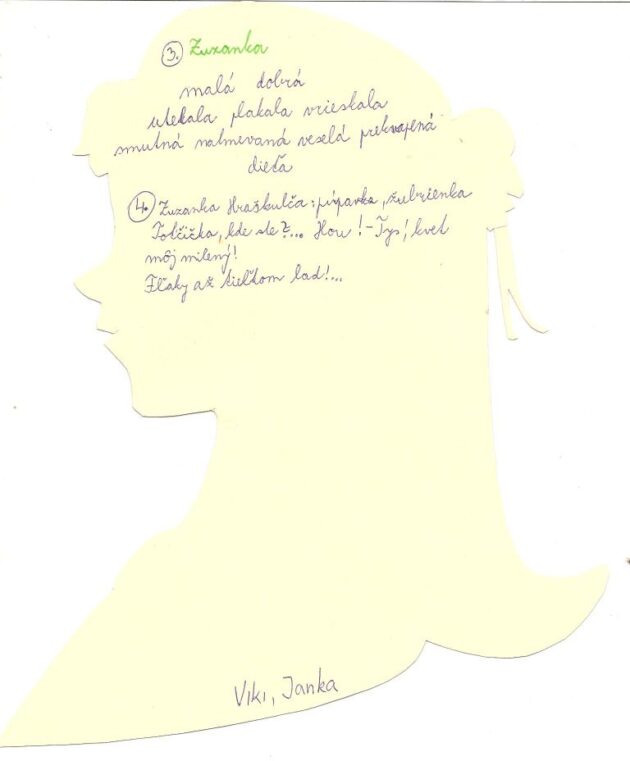 3. Zuzanka
malá dobrá
utekala plakala vrieskala
smutná nahnevaná veselá prekvapená
dieťa
4. Zuzanka Hraškuľča: púpavka, žubrienka
Totčička, kde ste?... Hou! – Tys', kvet
môj milený!
Fľaky až tieľkom lad!...
Viki, Janka